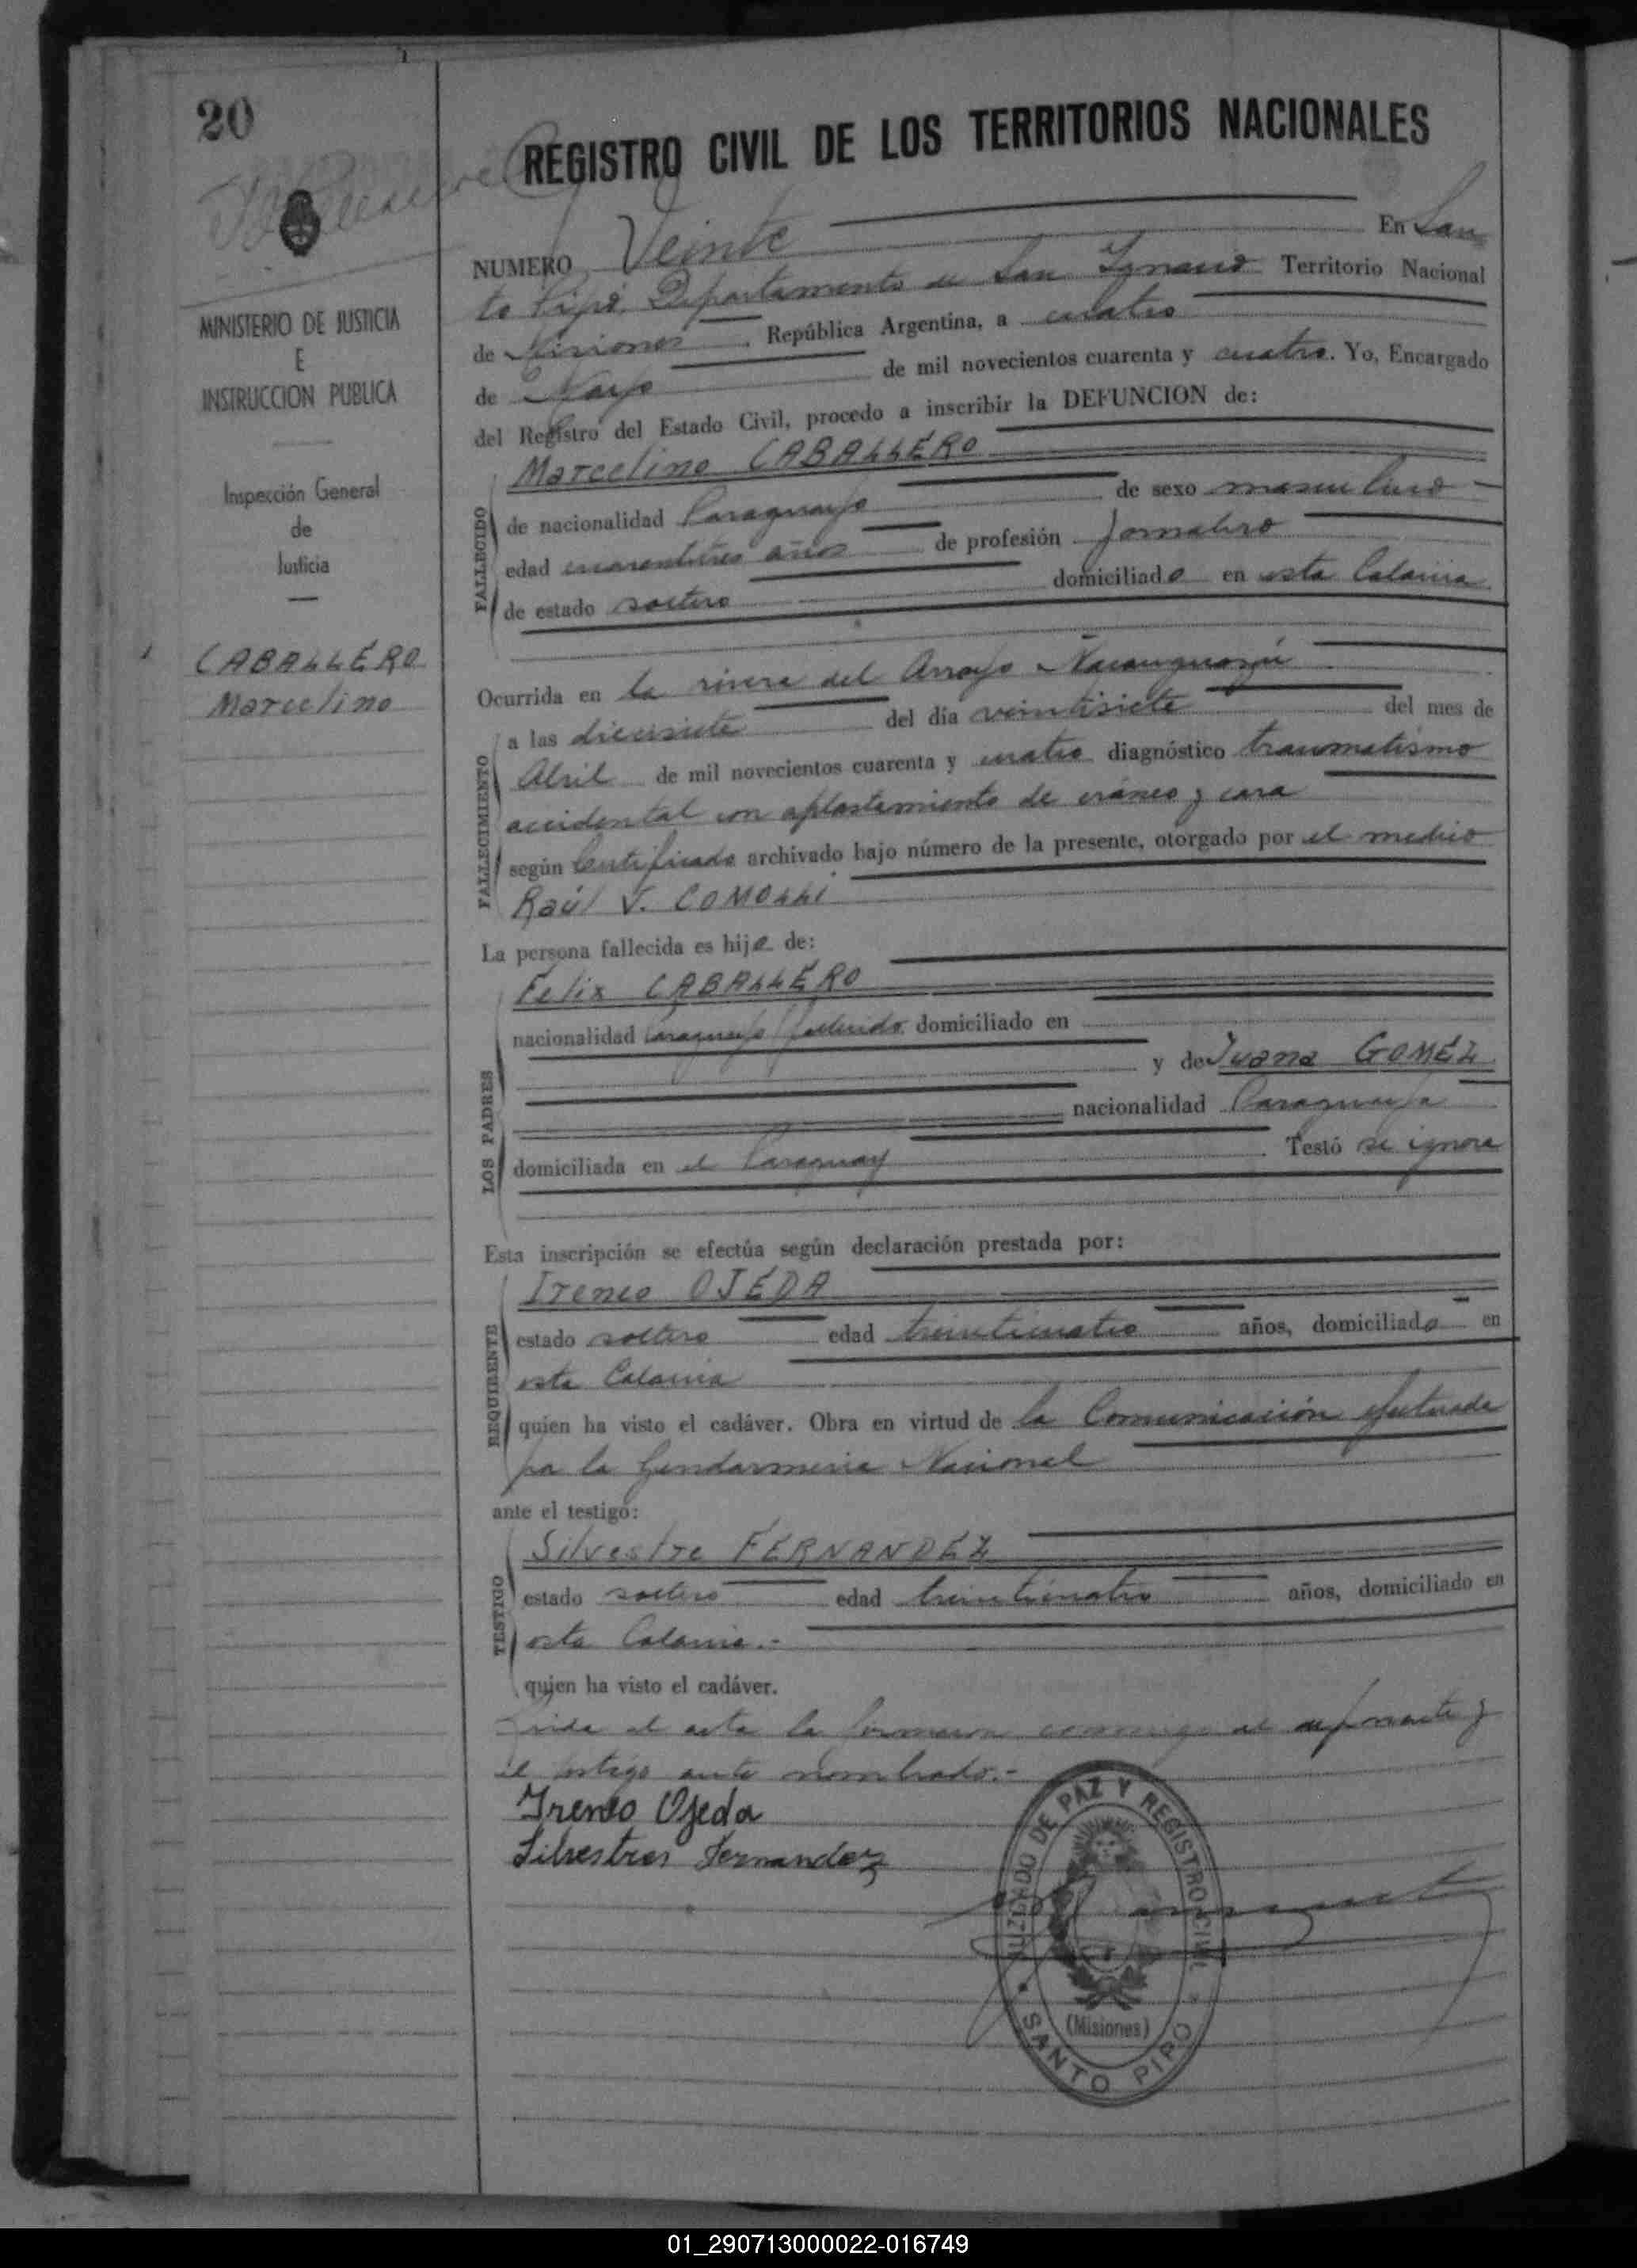 20
REGISTRO CIVIL DE LOS TERRITORIOS NACIONALES
NUMERO Veinte En San
to Pipó, Departamento de San Ignacio Territorio Nacional
de Misiones República Argentina, a cuatro
de Mayo de mil novecientos cuarenta y cuatro. Yo, Encargado
del Registro del Estado Civil, procedo a inscribir la DEFUNCION de:
MINISTERIO DE JUSTICIA
E
INSTRUCCION PUBLICA
Inspección General
de
Justicia
CABALLERO
Marcelino
FALLECIDO
Marcelino CABALLERO
de nacionalidad Paraguayo de sexo masculino
edad cuarentitres años de profesión Jornalero
de estado soltero domiciliado en esta Colonia
FALLECIMIENTO
Ocurrida en la rivera del Arroyo
a las diecisiete del día veintisiete del mes de
Abril de mil novecientos cuarenta y cuatro diagnóstico traumatismo
accidental con aplastamiento de cráneo y cara
según Certificado archivado bajo número de la presente, otorgado por el medico
Raúl V. COMOLLI
La persona fallecida es hijo de:
LOS PADRES
Felix CABALLERO
nacionalidad Paraguayo fallecido domiciliado en
y de Juana GOMEZ
nacionalidad Paraguaya
domiciliada en el Paraguay Testó se ignora
Esta inscripción se efectúa según declaración prestada por:
REQUIRENTE
Ireneo OJEDA
estado soltero edad treinticuatro años, domiciliado en
esta Colonia
quien ha visto el cadáver. Obra en virtud de la Comunicación efectuada
por la Gendarmeria Nacional
ante el testigo:
TESTIGO
Silvestre FERNANDEZ
estado soltero edad treinticuatro años, domiciliado en
esta Colonia.-
quien ha visto el cadáver.
Leida el acta la firmaron conmigo el y
el testigo ante nombrado.-
Ireneo Ojeda
Silvestres Fernandez
JUZGADO DE PAZ Y REGISTRO CIVIL
(Misiones)
SANTO PIPO
01_290713000022-016749